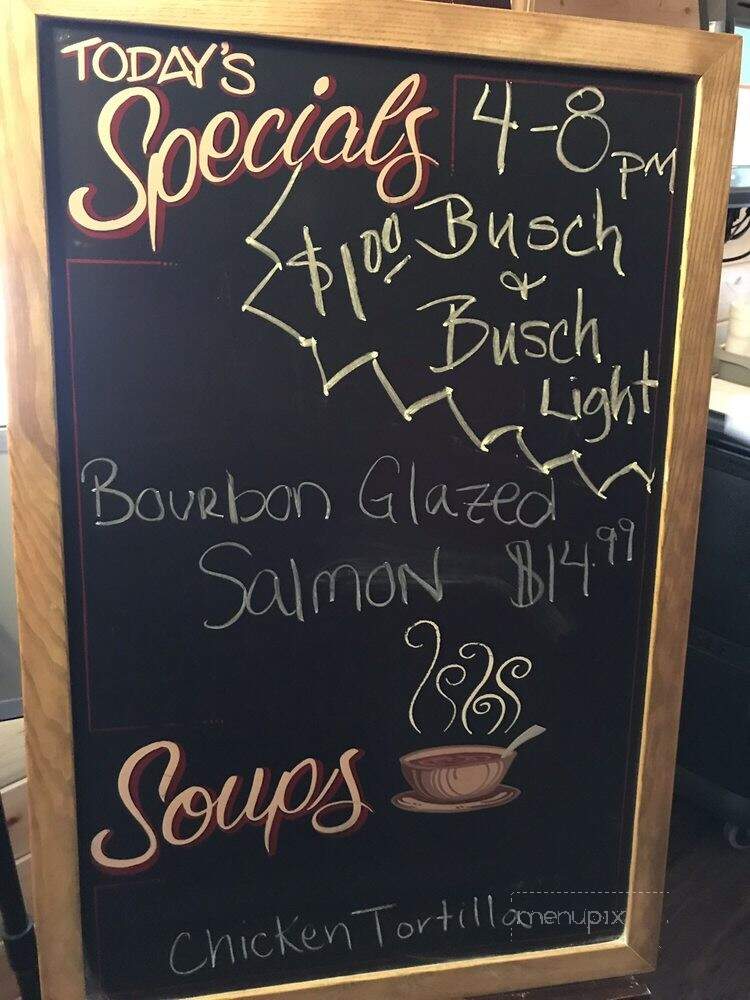 TODAY'S
Specials
4-8 PM
$1.00 Busch
&
Busch
Light
Bourbon Glazed
Salmon $14.99
Soups
Chicken Tortilla
menupix